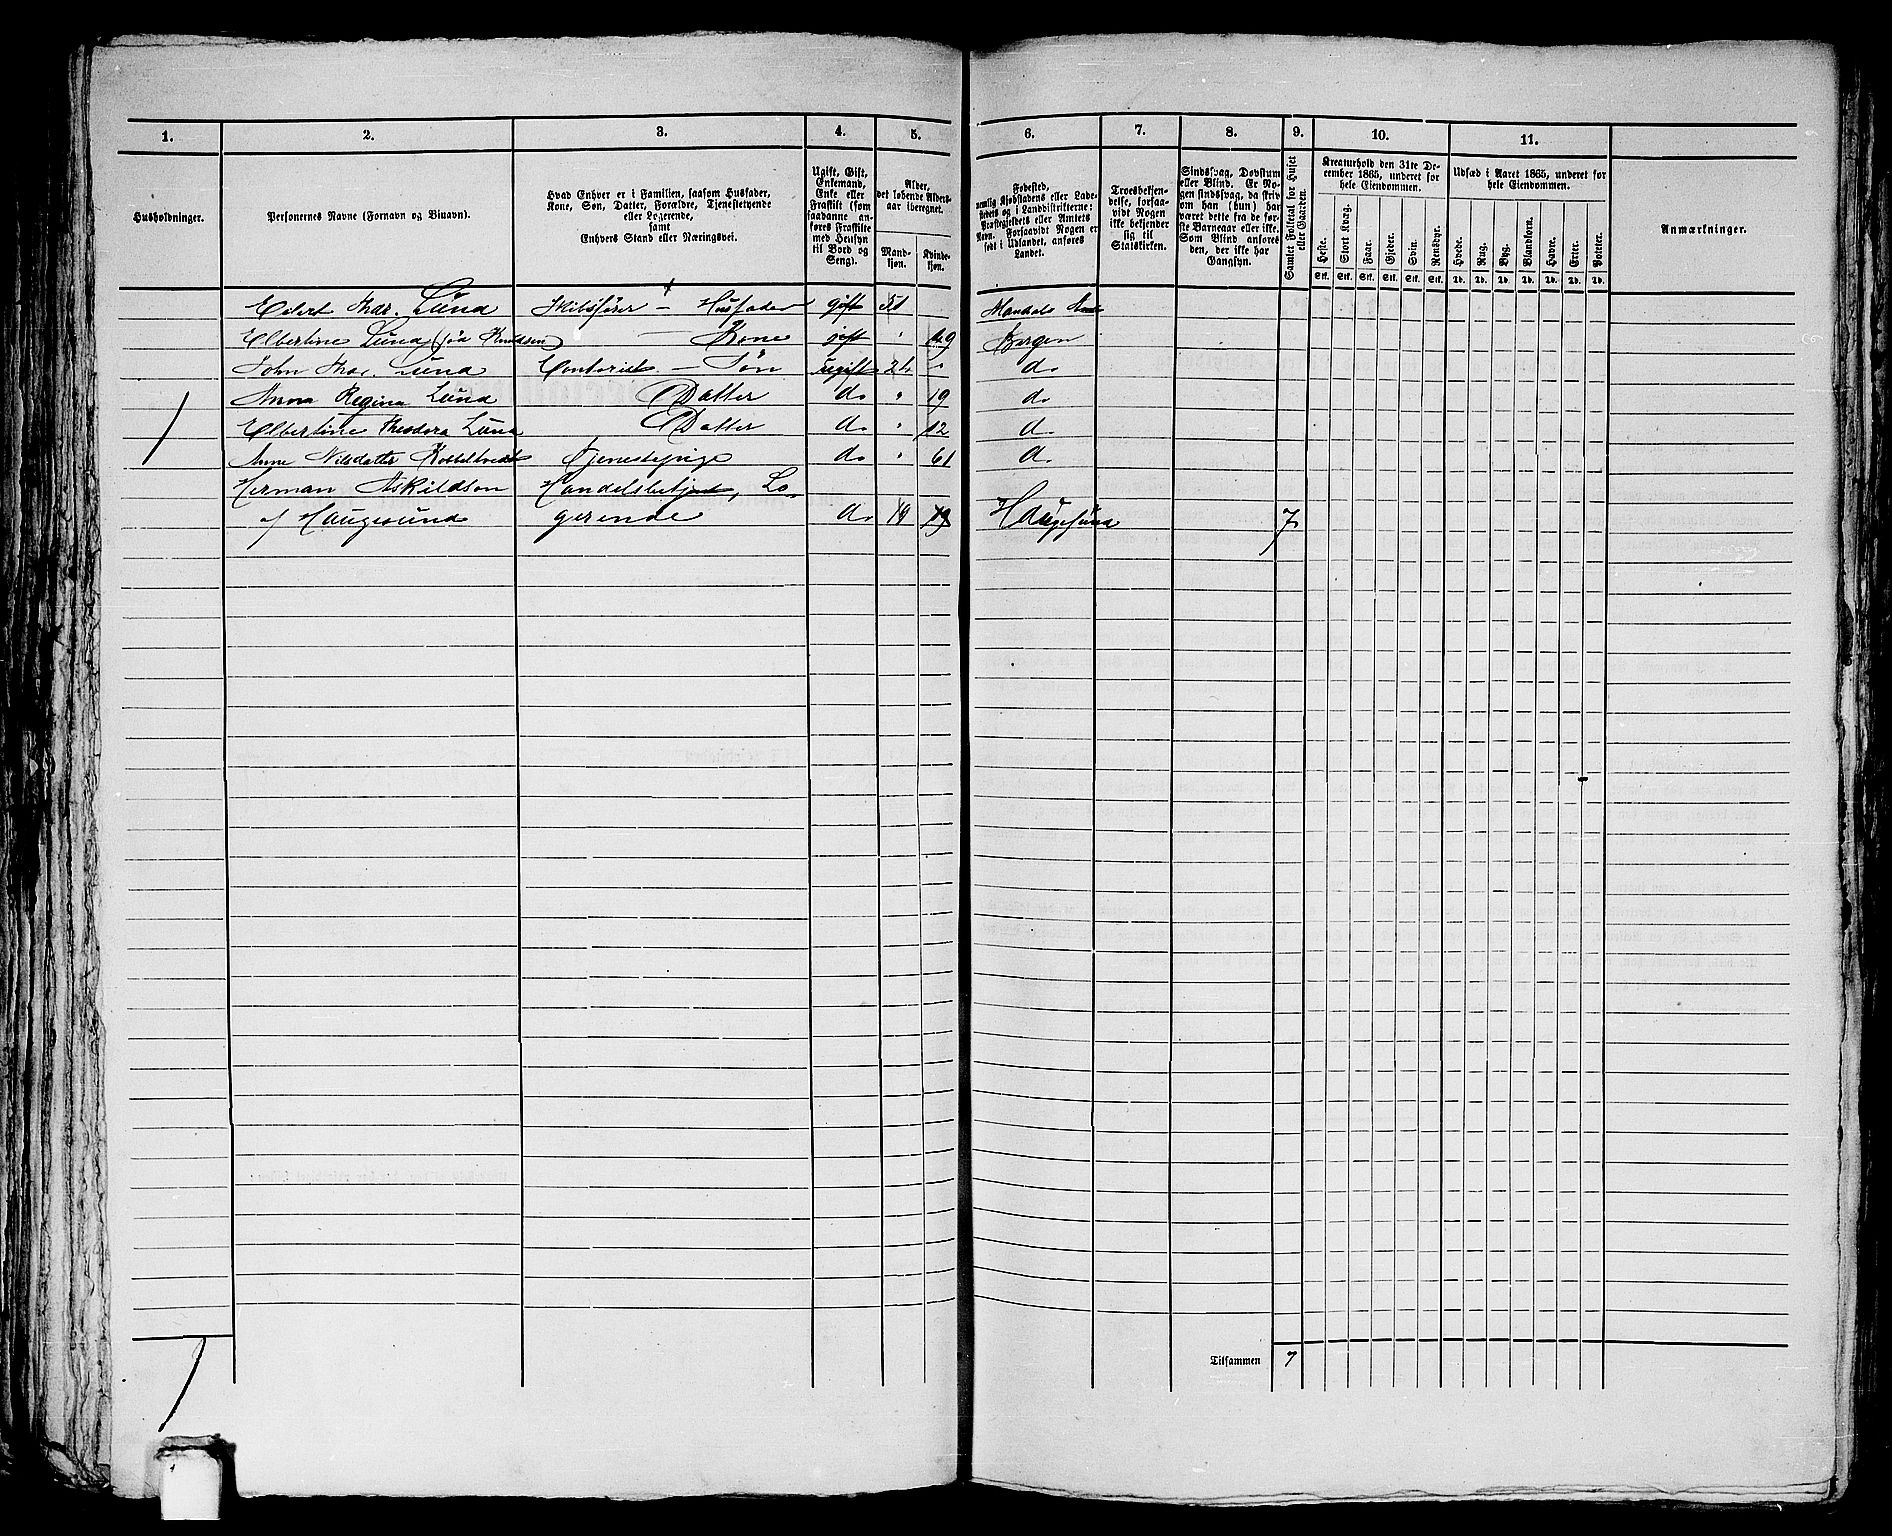 1. 2. 3. 4. 5. 6. 7. 8. 9. 10. 11.
Husholdninger.
Personernes Navne (Fornavn og Binavn).
Hvad Enhver er i Familien, saasom Husfader,
Kone, Søn, Datter, Forældre, Tjenestetyende
eller Logerende,
samt
Enhvers Stand eller Næringsvei.
Ugift, Gift,
Enkemand,
Enke eller
Fraskilt (som
saadanne an-
føres Fraskilte
med Hensyn
til Bord og
Seng).
Alder,
det løbende Alders-
aar iberegnet.
Mand-
kjøn.
Kvinde-
kjøn.
Fødested,
nemlig Kjøbstadens eller Lade-
stedets og i Landdistrikterne:
Præstegjeldets eller Amtets
Navn. Forsaavidt Nogen er
født i Udlandet, anføres
Landet.
Troesbekjen-
delse, forsaa-
vidt Nogen
ikke bekjender
sig til
Statskirken.
Sindssvag, Døvstum
eller Blind. Er No-
gen sindssvag, da skriv
om han (hun) har
været dette fra de før-
ste Barneaar eller ikke.
Som Blind anføres
den, der ikke har
Gangsyn.
Samlet Folketal for Huset
eller Gaarden.
Kreaturhold den 31te De-
cember 1865, underet for
hele Eiendommen.
Heste. Stort Kvæg. Faar. Gjeder. Svin. Rensdyr.
Stk. Stk. Stk. Stk. Stk. Stk.
Udsæd i Aaret 1865, underet for
hele Eiendommen.
Hvede. Rug. Byg. Blandkorn. Havre. Erter. Poteter.
Td. Td. Td. Td. Td. Td. Td.
Anmærkninger.
Eilert Lund Skibsfører - Husfader gift 51 Mandals
Elbertine Lund (fød Knudsen) - Kone gift " 49 Bergen
John Lund Contorist - Søn ugift 24 " do
Anna Regina Lund Datter do " 19 do
Elbertine Theodora Lund Datter do " 12 do
Anne Nilsdatter Tjenestepige do " 61 do
Herman Askildson Handelsbetjent, Lo-
af Haugesund gerende do 19 Haugesund 7
1
Tilsammen 7
1